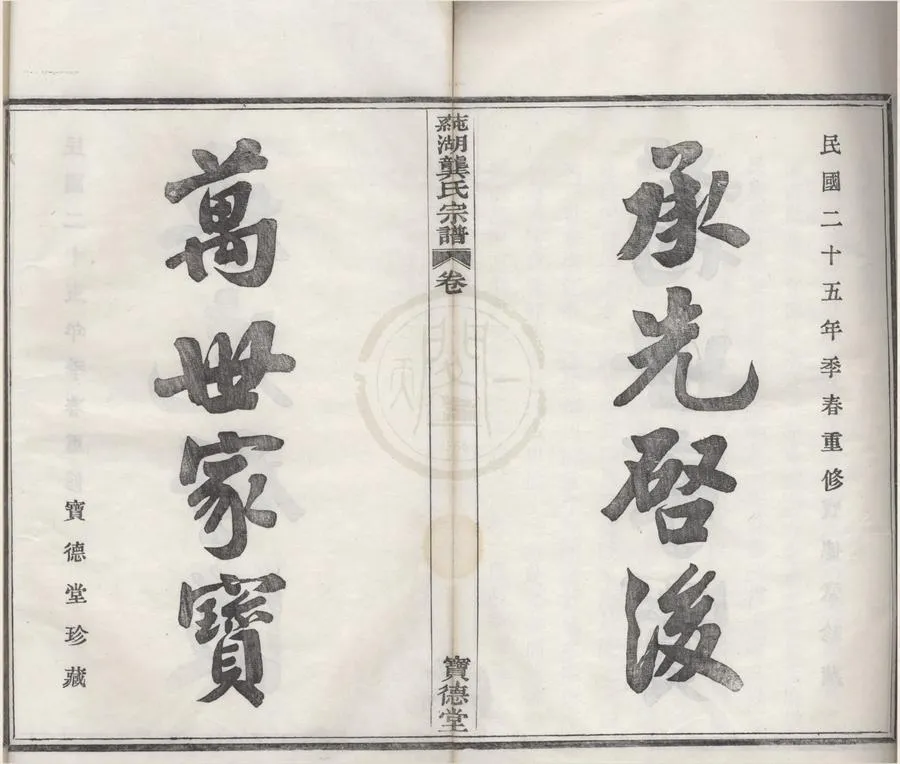 民國二十五年季春重修
承先啓後
蒓湖龔氏宗譜
卷
寶德堂
萬世家寶
寶德堂珍藏